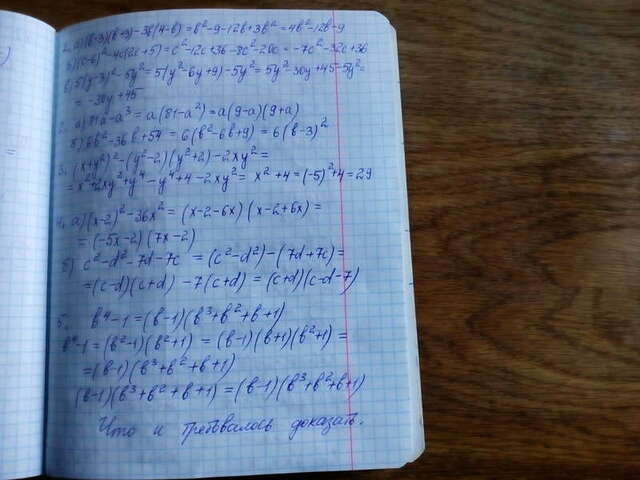 1. а)(в-3)(в+3)-3в(4-в)=в²-9-12в+3в²=4в²-12в-9
б)(c-6)²-4c(2c+5)=c²-12c+36-8c²-20c=-7c²-32c+36
в)5(y-3)²-5y²=5(y²-6y+9)-5y²=5y²-30y+45-5y²=
= -30y+45
2. а)81a-a³=a(81-a²)=a(9-a)(9+a)
б)6в²-36в+54=6(в²-6в+9)=6(в-3)²
3. (x+y²)²-(y²-2)(y²+2)-2xy²=
=x²+2xy²+y⁴-y⁴+4-2xy²= x²+4=(-5)²+4=29
4. а)(x-2)²-36x²=(x-2-6x)(x-2+6x)=
=(-5x-2)(7x-2)
б) c²-d²-7d-7c =(c²-d²)-(7d+7c)=
=(c-d)(c+d)-7(c+d)=(c+d)(c-d-7)
5. в⁴-1=(в-1)(в³+в²+в+1)
в⁴-1=(в²-1)(в²+1)=(в-1)(в+1)(в²+1)=
=(в-1)(в³+в²+в+1)
(в-1)(в³+в²+в+1)=(в-1)(в³+в²+в+1)
Что и требовалось доказать.